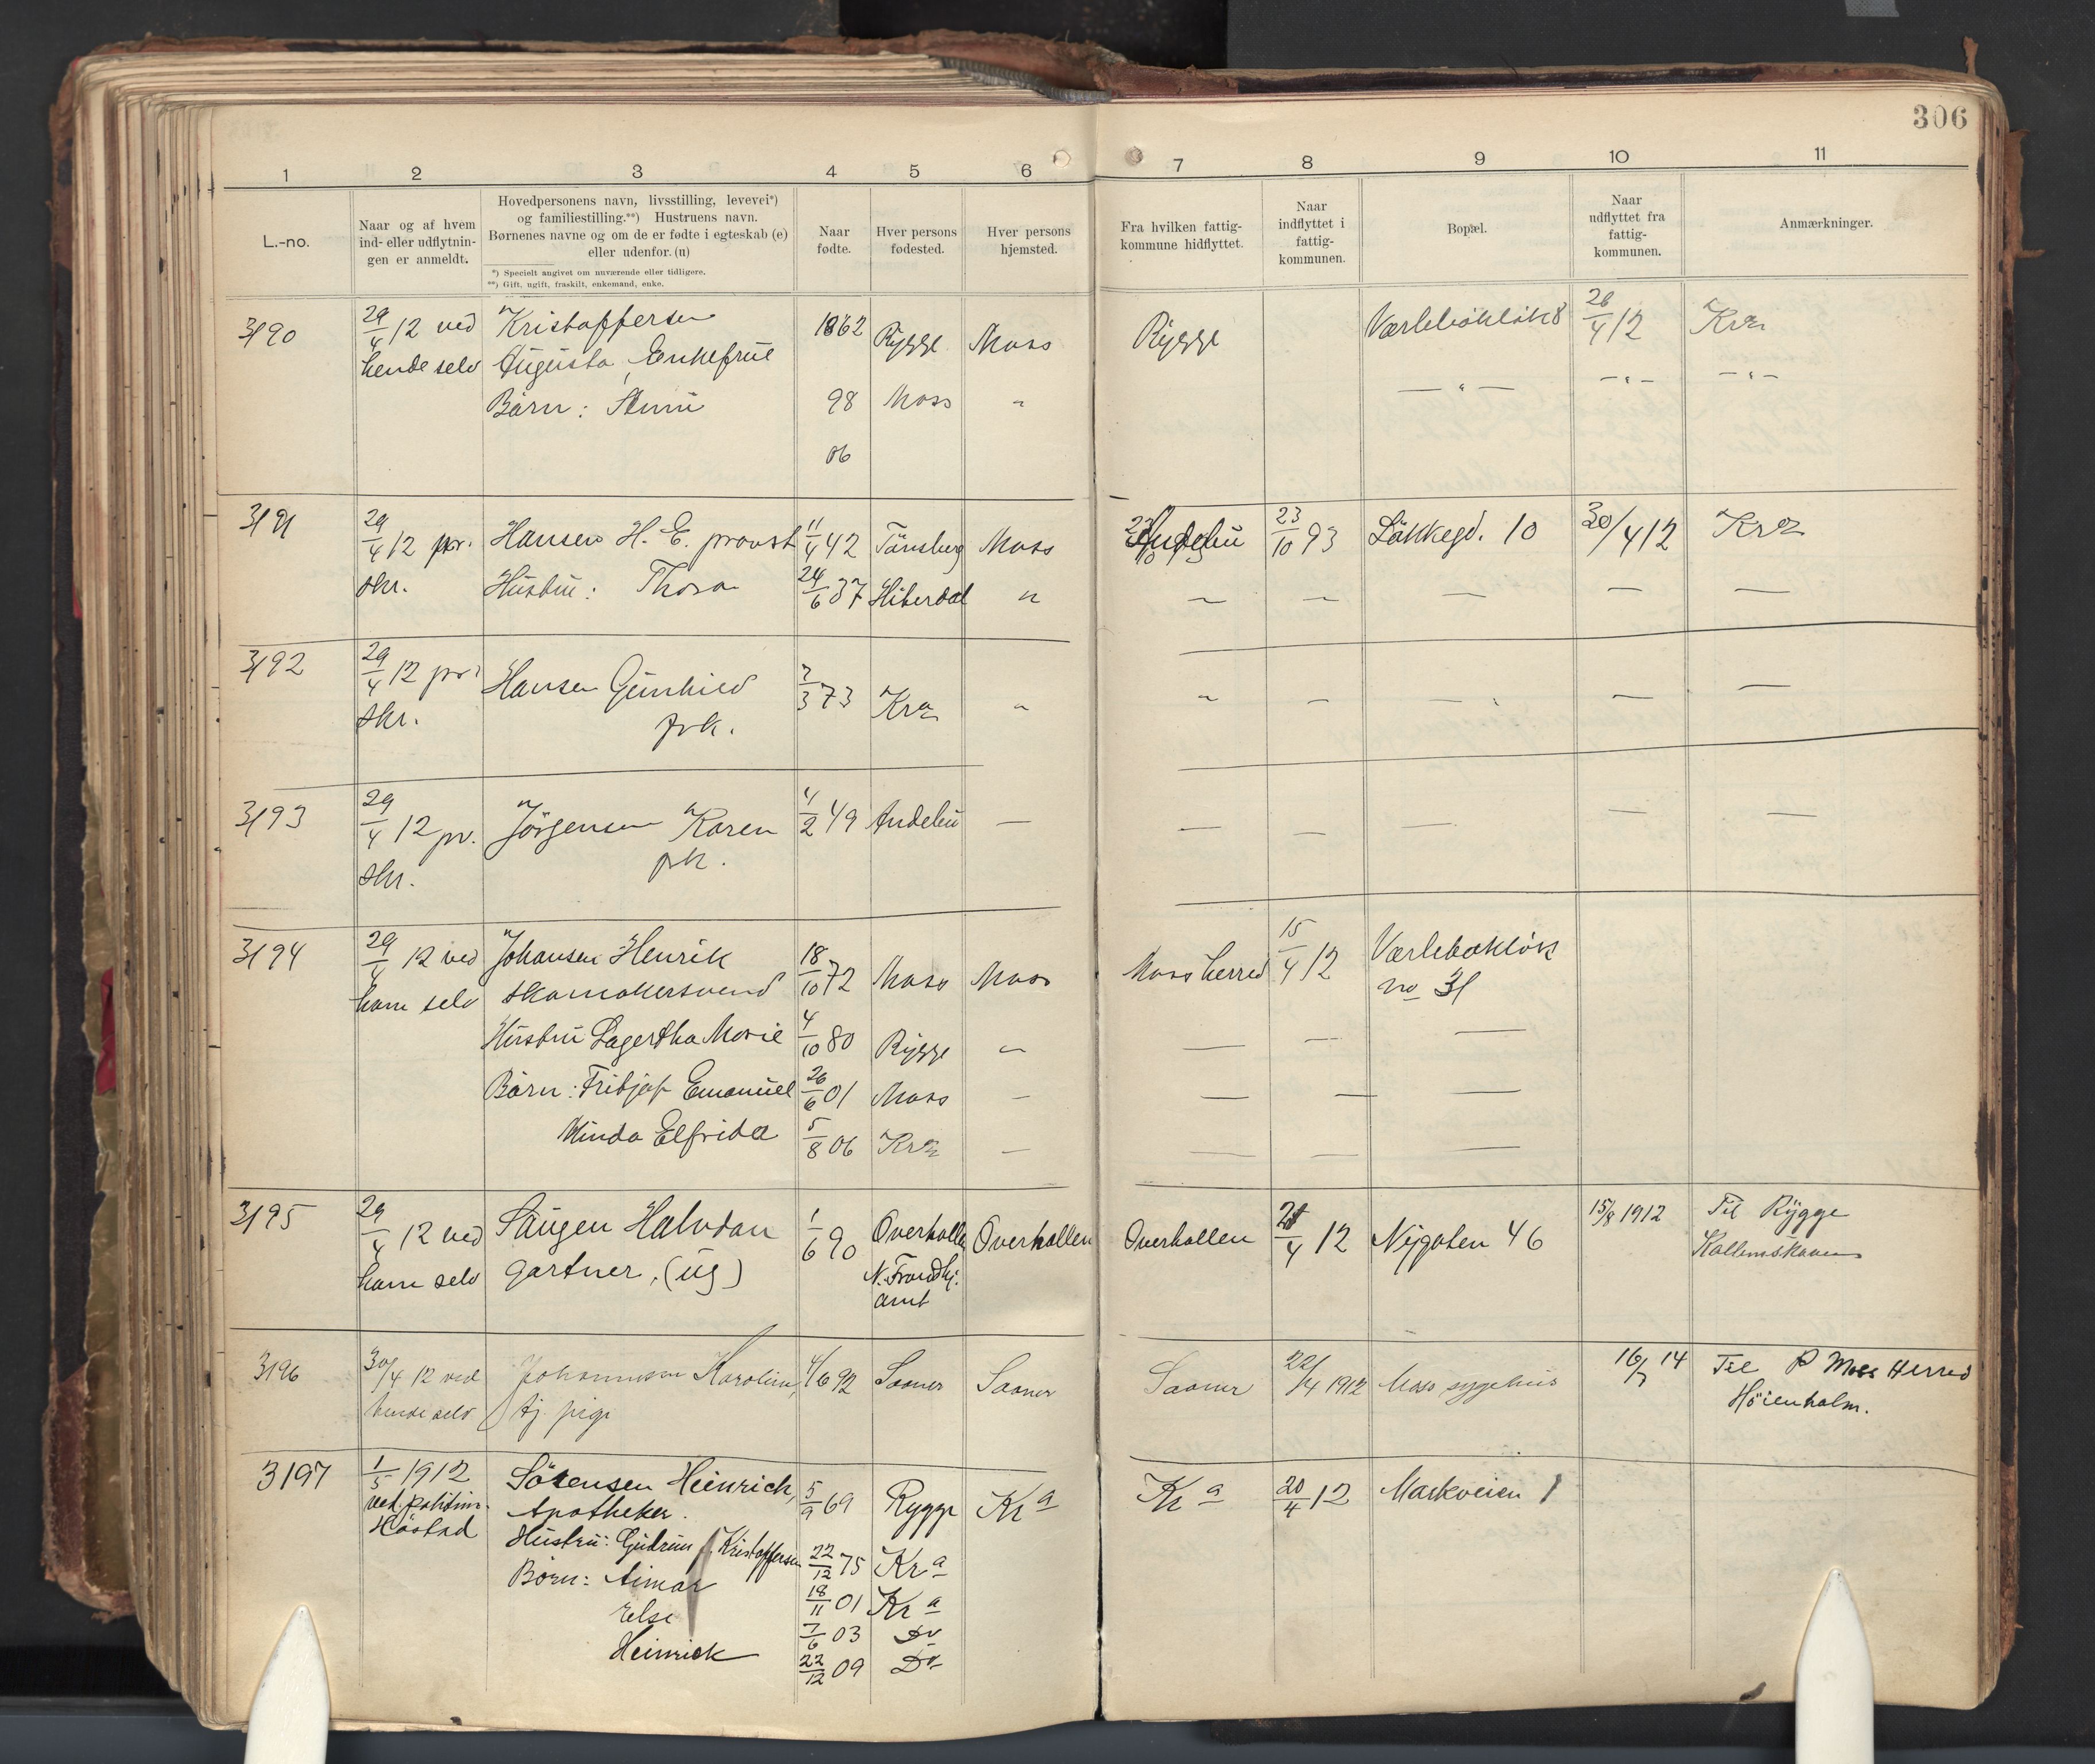 306
1 2 3 4 5 6 7 8 9 10 11
L.-no.
Naar og af hvem
ind- eller udflytnin-
gen er anmeldt.
Hovedpersonens navn, livsstilling, levevei*)
og familiestilling.**) Hustruens navn.
Børnenes navne og om de er fødte i egteskab (e)
eller udenfor. (u)
*) Specielt angivet om nuværende eller tidligere.
**) Gift, ugift, fraskilt, enkemand, enke.
Naar
fødte.
Hver persons
fødested.
Hver persons
hjemsted.
Fra hvilken fattig-
kommune hidflyttet.
Naar
indflyttet i
fattig-
kommunen.
Bopæl.
Naar
udflyttet fra
fattig-
kommunen.
Anmærkninger.
3190 29/4 12 ved Kristoffersen 1862 Rygge Moss Rygge 26/4 12 Kra
hende selv Augusta, Enkefrue — " — — " — — " —
Børn: 98 Moss "
06
3191 29/4 12 pr. Hansen H. E. provst 11/4 42 Tönsberg Moss Andebu 23/10 93 10 30/4 12 Kra
skr. Hustru: Thora 24/6 37 Hiterdal " — — — — —
3192 29/4 12 pr. Hansen Gunhild 7/3 73 Kra " " — — — —
skr. frk.
3193 29/4 12 pr. Jörgensen Karen 11/2 49 Andebu — — — — — —
skr. frk.
3194 29/4 12 ved Johansen Henrik 18/10 72 Moss Moss Moss herred 15/4 12 Værlebakløk
ham selv skomakersvend no 31
Hustru Lagertha Marie 4/10 80 Rygge — — — —
Børn: Fritjof Emanuel 26/6 01 Moss — — — —
Minda Elfrida 5/8 06 Kra — — — —
3195 29/4 12 ved Saugen Halvdan 1/6 90 Overhallen Overhallen Overhallen 4 12 Nygaten 46 15/8 1912 Til Rygge
ham selv gartner, (ug) N. Trondhj.
amt
3196 30/4 12 ved Johannesen Karoline, 4/6 92 Saaner Saaner Saaner 22/4 1912 Moss sygehus 16/7 14 Til Moss Herred
hende selv tj. pige Höienholm.
3197 1/5 1912 Sörensen Heinrich, 5/9 69 Rygge Kra Kra 20/4 12 Markveien 1
ved politim. Apotheker.
Høstad Hustru: Gudrun f. Kristoffersen 22/12 75 Kra
Børn: Aimar 18/11 01 Kra
Else 7/6 03 Do
Heinrich 22/12 09 Do